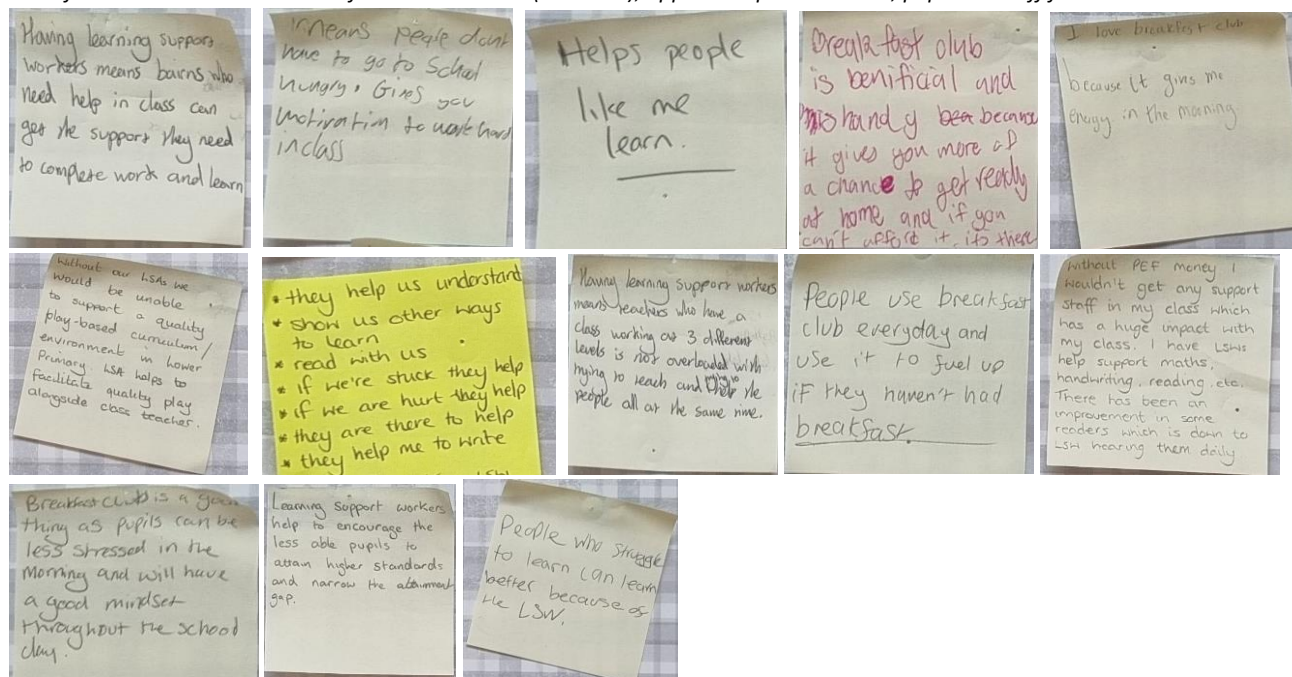 Having learning support
workers means bairns who
need help in class can
get the support they need
to complete work and learn
means people dont
have to go to School
hungry. Gives you
motivation to work hard
in class
Helps people
like me
learn.
Breakfast club
is benificial and
handy because
it gives you more of
a chance to get ready
at home and if you
can't afford it, its there
I love breakfast club
because it gives me
energy in the morning
Without our LSAs we
would be unable
to support a quality
play-based curriculum/
environment in lower
Primary LSA helps to
facilitate quality play
alongside class teacher.
* they help us understand
* show us other ways
to learn
* read with us
* if we're stuck they help
* if we are hurt they help
* they are there to help
* they help me to write
Having learning support workers
means teachers who have a
class working at 3 different
levels is not overloaded with
trying to reach and the
people all at the same time.
People use breakfast
club everyday and
use it to fuel up
if they haven't had
breakfast.
Without PEF money I
wouldn't get any support
staff in my class which
has a huge impact with
my class. I have LSWs
help support maths,
handwriting, reading, etc.
There has been an
improvement in some
readers which is down to
LSW hearing them daily
Breakfast club is a good
thing as pupils can be
less stressed in the
morning and will have
a good mindset
throughout the school
day.
Learning Support workers
help to encourage the
less able pupils to
attain higher standards
and narrow the attainment
gap.
People who struggle
to learn can learn
better because of
the LSW.